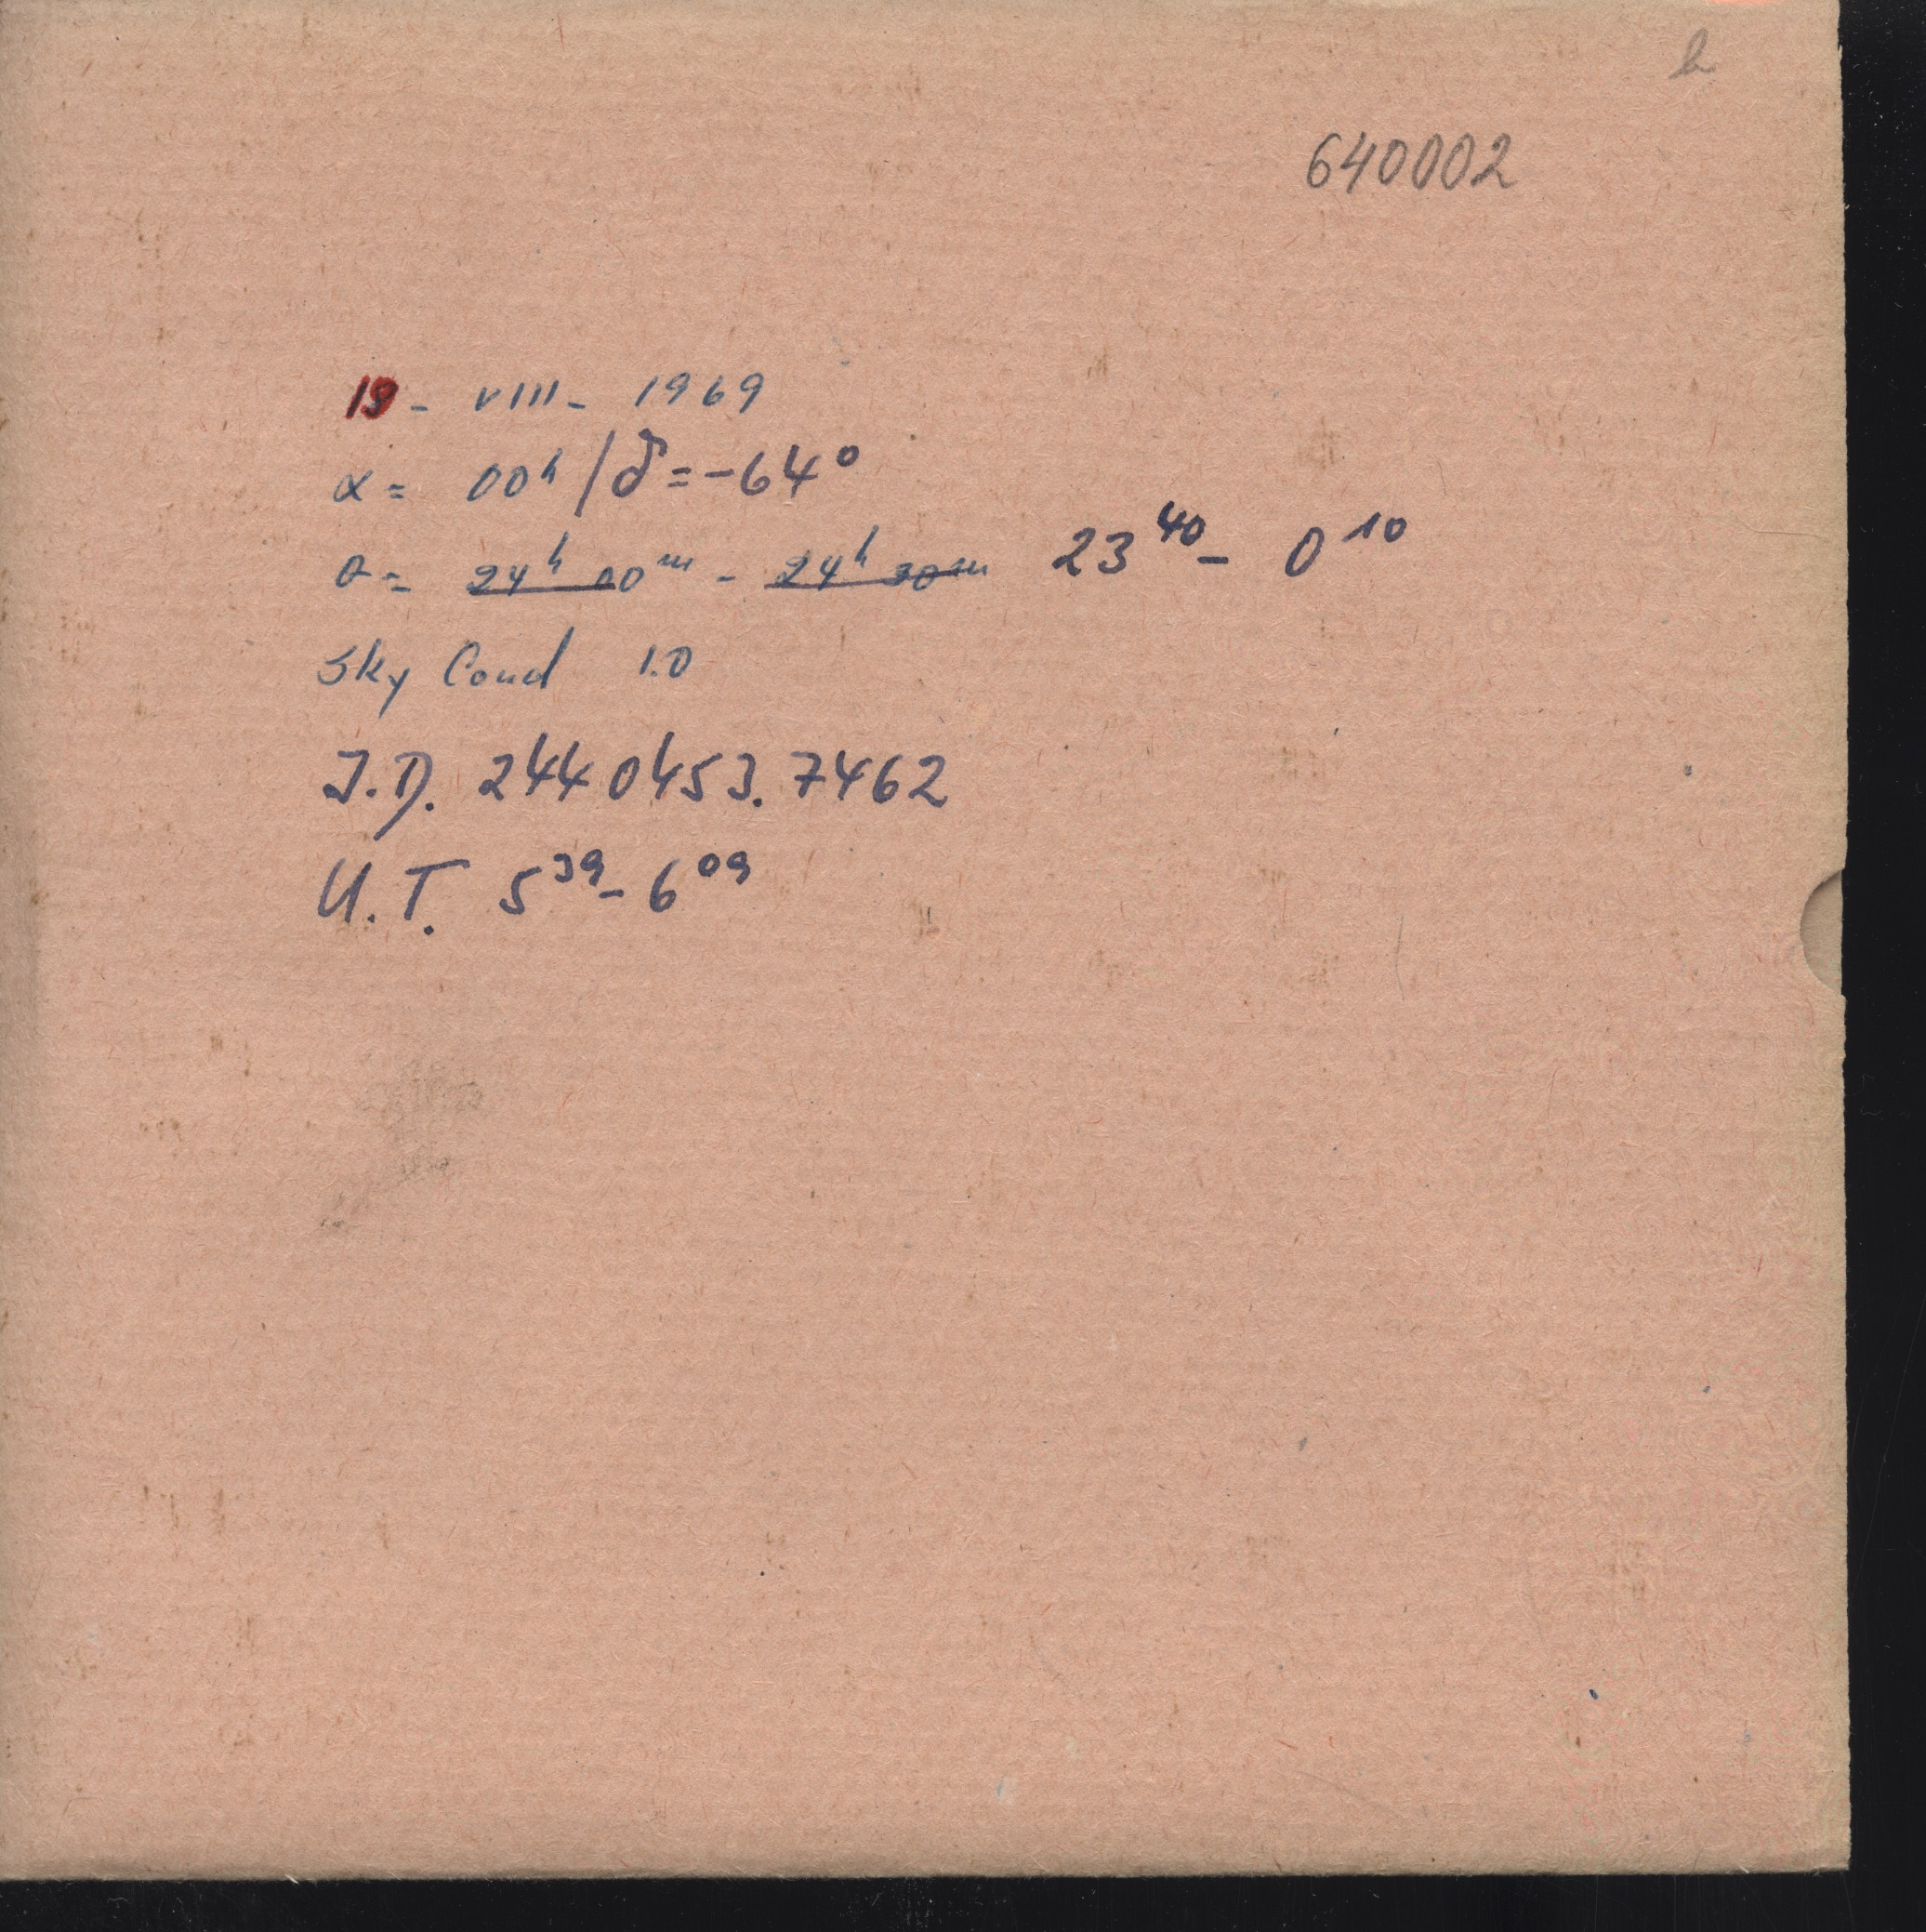 640002
19 - VIII - 1969
α = 00h / δ = -64°
θ = 24h 00m - 24h 30m 23 40 - 0 10
Sky Cond 1.0
J.D. 2440453.7462
U.T. 5 39 - 6 09